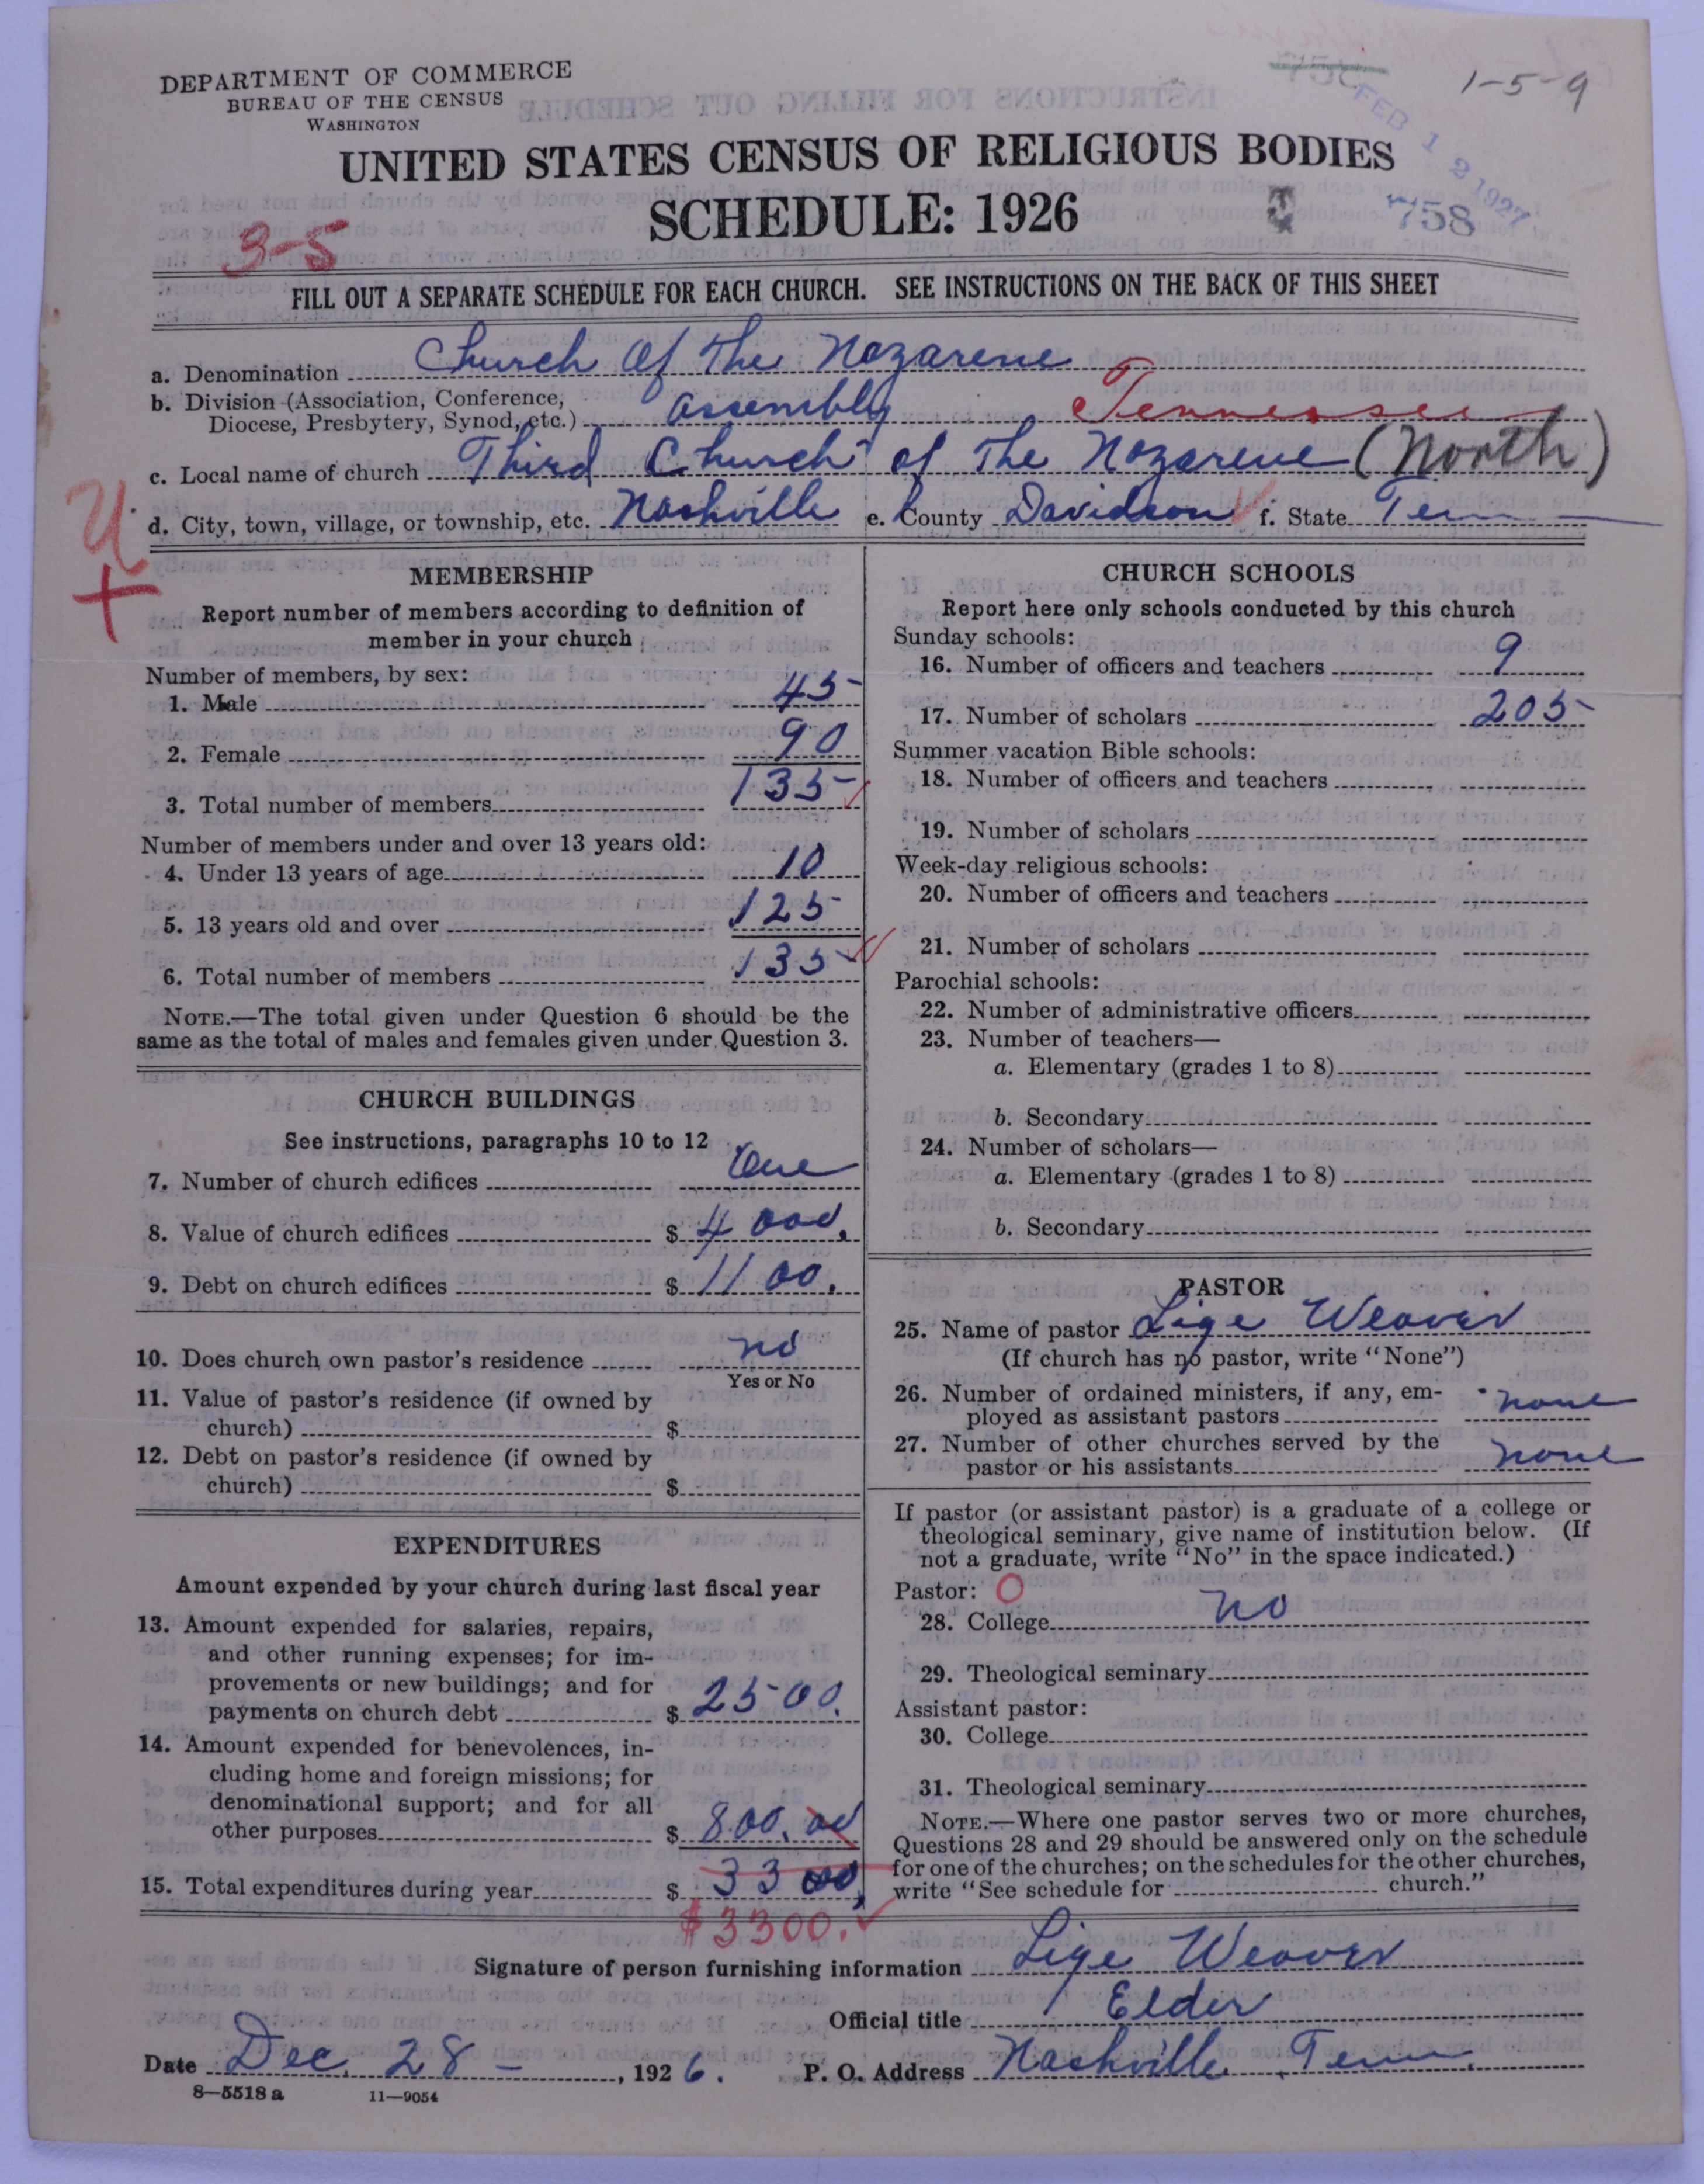 DEPARTMENT OF COMMERCE
BUREAU OF THE CENSUS
WASHINGTON
1-5-9
FEB 12 1927
UNITED STATES CENSUS OF RELIGIOUS BODIES
SCHEDULE: 1926
758
3-5
FILL OUT A SEPARATE SCHEDULE FOR EACH CHURCH. SEE INSTRUCTIONS ON THE BACK OF THIS SHEET
a. Denomination Church Of The Nazarene
b. Division (Association, Conference,
Diocese, Presbytery, Synod, etc.) assembly Tennessee
c. Local name of church Third Church of The Nazarene (North)
d. City, town, village, or township, etc. Nashville e. County Davidson f. State Tenn
MEMBERSHIP
Report number of members according to definition of
member in your church
Number of members, by sex:
1. Male 45
2. Female 90
3. Total number of members 135
Number of members under and over 13 years old:
4. Under 13 years of age 10
5. 13 years old and over 125
6. Total number of members 135
NOTE.—The total given under Question 6 should be the
same as the total of males and females given under Question 3.
CHURCH BUILDINGS
See instructions, paragraphs 10 to 12
7. Number of church edifices One
8. Value of church edifices $ 4000.
9. Debt on church edifices $ 1100.
10. Does church own pastor's residence no
Yes or No
11. Value of pastor's residence (if owned by
church) $
12. Debt on pastor's residence (if owned by
church) $
EXPENDITURES
Amount expended by your church during last fiscal year
13. Amount expended for salaries, repairs,
and other running expenses; for im-
provements or new buildings; and for
payments on church debt $ 2500.
14. Amount expended for benevolences, in-
cluding home and foreign missions; for
denominational support; and for all
other purposes $ 800.00
15. Total expenditures during year $ 3300
$3300.
CHURCH SCHOOLS
Report here only schools conducted by this church
Sunday schools:
16. Number of officers and teachers 9
17. Number of scholars 205
Summer vacation Bible schools:
18. Number of officers and teachers
19. Number of scholars
Week-day religious schools:
20. Number of officers and teachers
21. Number of scholars
Parochial schools:
22. Number of administrative officers
23. Number of teachers—
a. Elementary (grades 1 to 8)
b. Secondary
24. Number of scholars—
a. Elementary (grades 1 to 8)
b. Secondary
PASTOR
25. Name of pastor Lige Weaver
(If church has no pastor, write "None")
26. Number of ordained ministers, if any, em-
ployed as assistant pastors none
27. Number of other churches served by the
pastor or his assistants none
If pastor (or assistant pastor) is a graduate of a college or
theological seminary, give name of institution below. (If
not a graduate, write "No" in the space indicated.)
Pastor: O
28. College no
29. Theological seminary
Assistant pastor:
30. College
31. Theological seminary
NOTE.—Where one pastor serves two or more churches,
Questions 28 and 29 should be answered only on the schedule
for one of the churches; on the schedules for the other churches,
write "See schedule for church."
Signature of person furnishing information Lige Weaver
Official title Elder
Date Dec. 28 - , 1926. P. O. Address Nashville, Tenn.
8—5518 a 11—9054